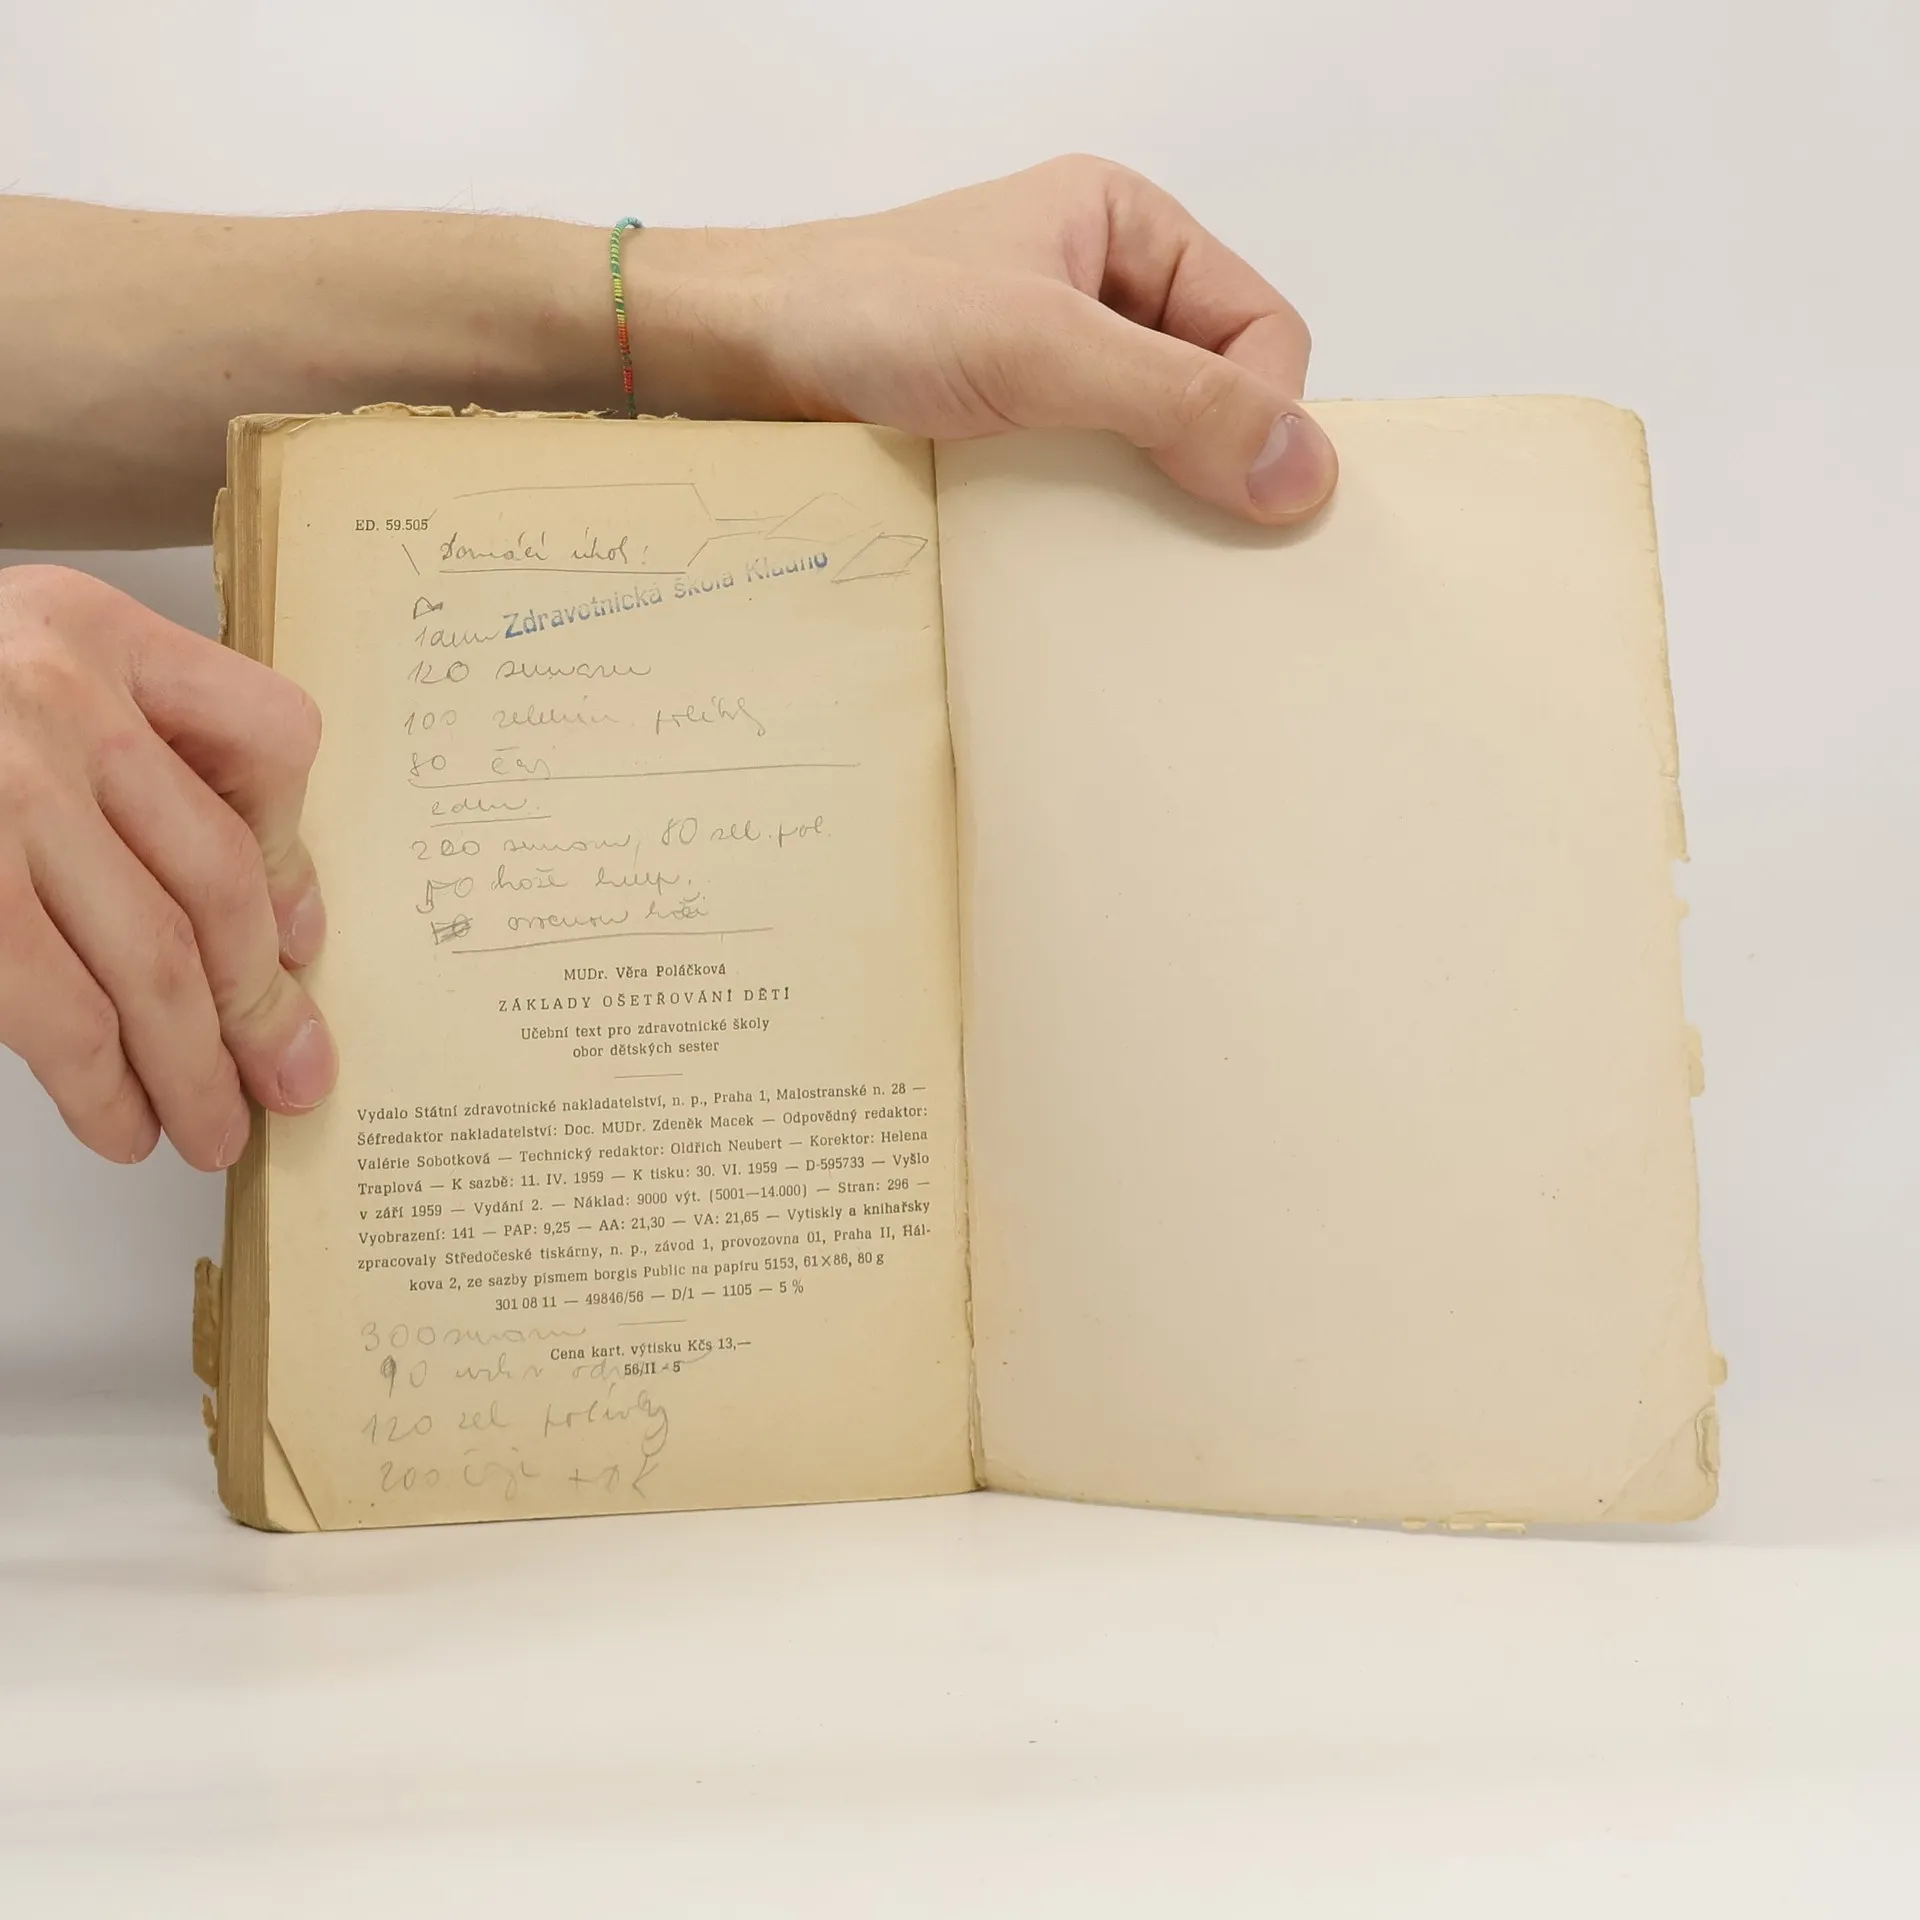 ED. 59.505
Domácí úkol:
Zdravotnická škola Kladno
1 den
120 sunaru
100 zelenin. polévky
80 čaj
2 den.
200 sunaru, 80 zel. pol.
50
MUDr. Věra Poláčková
ZÁKLADY OŠETŘOVÁNÍ DĚTÍ
Učební text pro zdravotnické školy
obor dětských sester
Vydalo Státní zdravotnické nakladatelství, n. p., Praha 1, Malostranské n. 28 —
Šéfredaktor nakladatelství: Doc. MUDr. Zdeněk Macek — Odpovědný redaktor:
Valérie Sobotková — Technický redaktor: Oldřich Neubert — Korektor: Helena
Traplová — K sazbě: 11. IV. 1959 — K tisku: 30. VI. 1959 — D-595733 — Vyšlo
v září 1959 — Vydání 2. — Náklad: 9000 výt. (5001—14.000) — Stran: 296 —
Vyobrazení: 141 — PAP: 9,25 — AA: 21,30 — VA: 21,65 — Vytiskly a knihařsky
zpracovaly Středočeské tiskárny, n. p., závod 1, provozovna 01, Praha II, Hál-
kova 2, ze sazby písmem borgis Public na papíru 5153, 61×86, 80 g
301 08 11 — 49846/56 — D/1 — 1105 — 5 %
300 sunaru
Cena kart. výtisku Kčs 13,—
56/II - 5
90
120 zel polévky
200